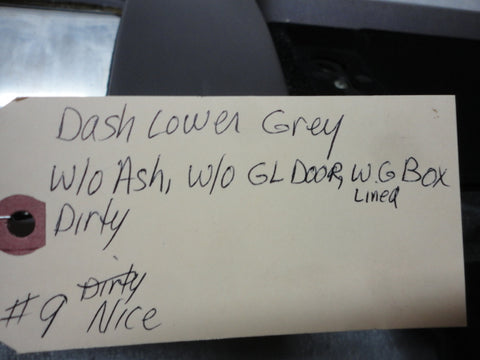 Dash Lower Grey
W/o Ash, W/o GL DOOR, W. G BOX
Lined
Dirty
Dirty
#9 Nice